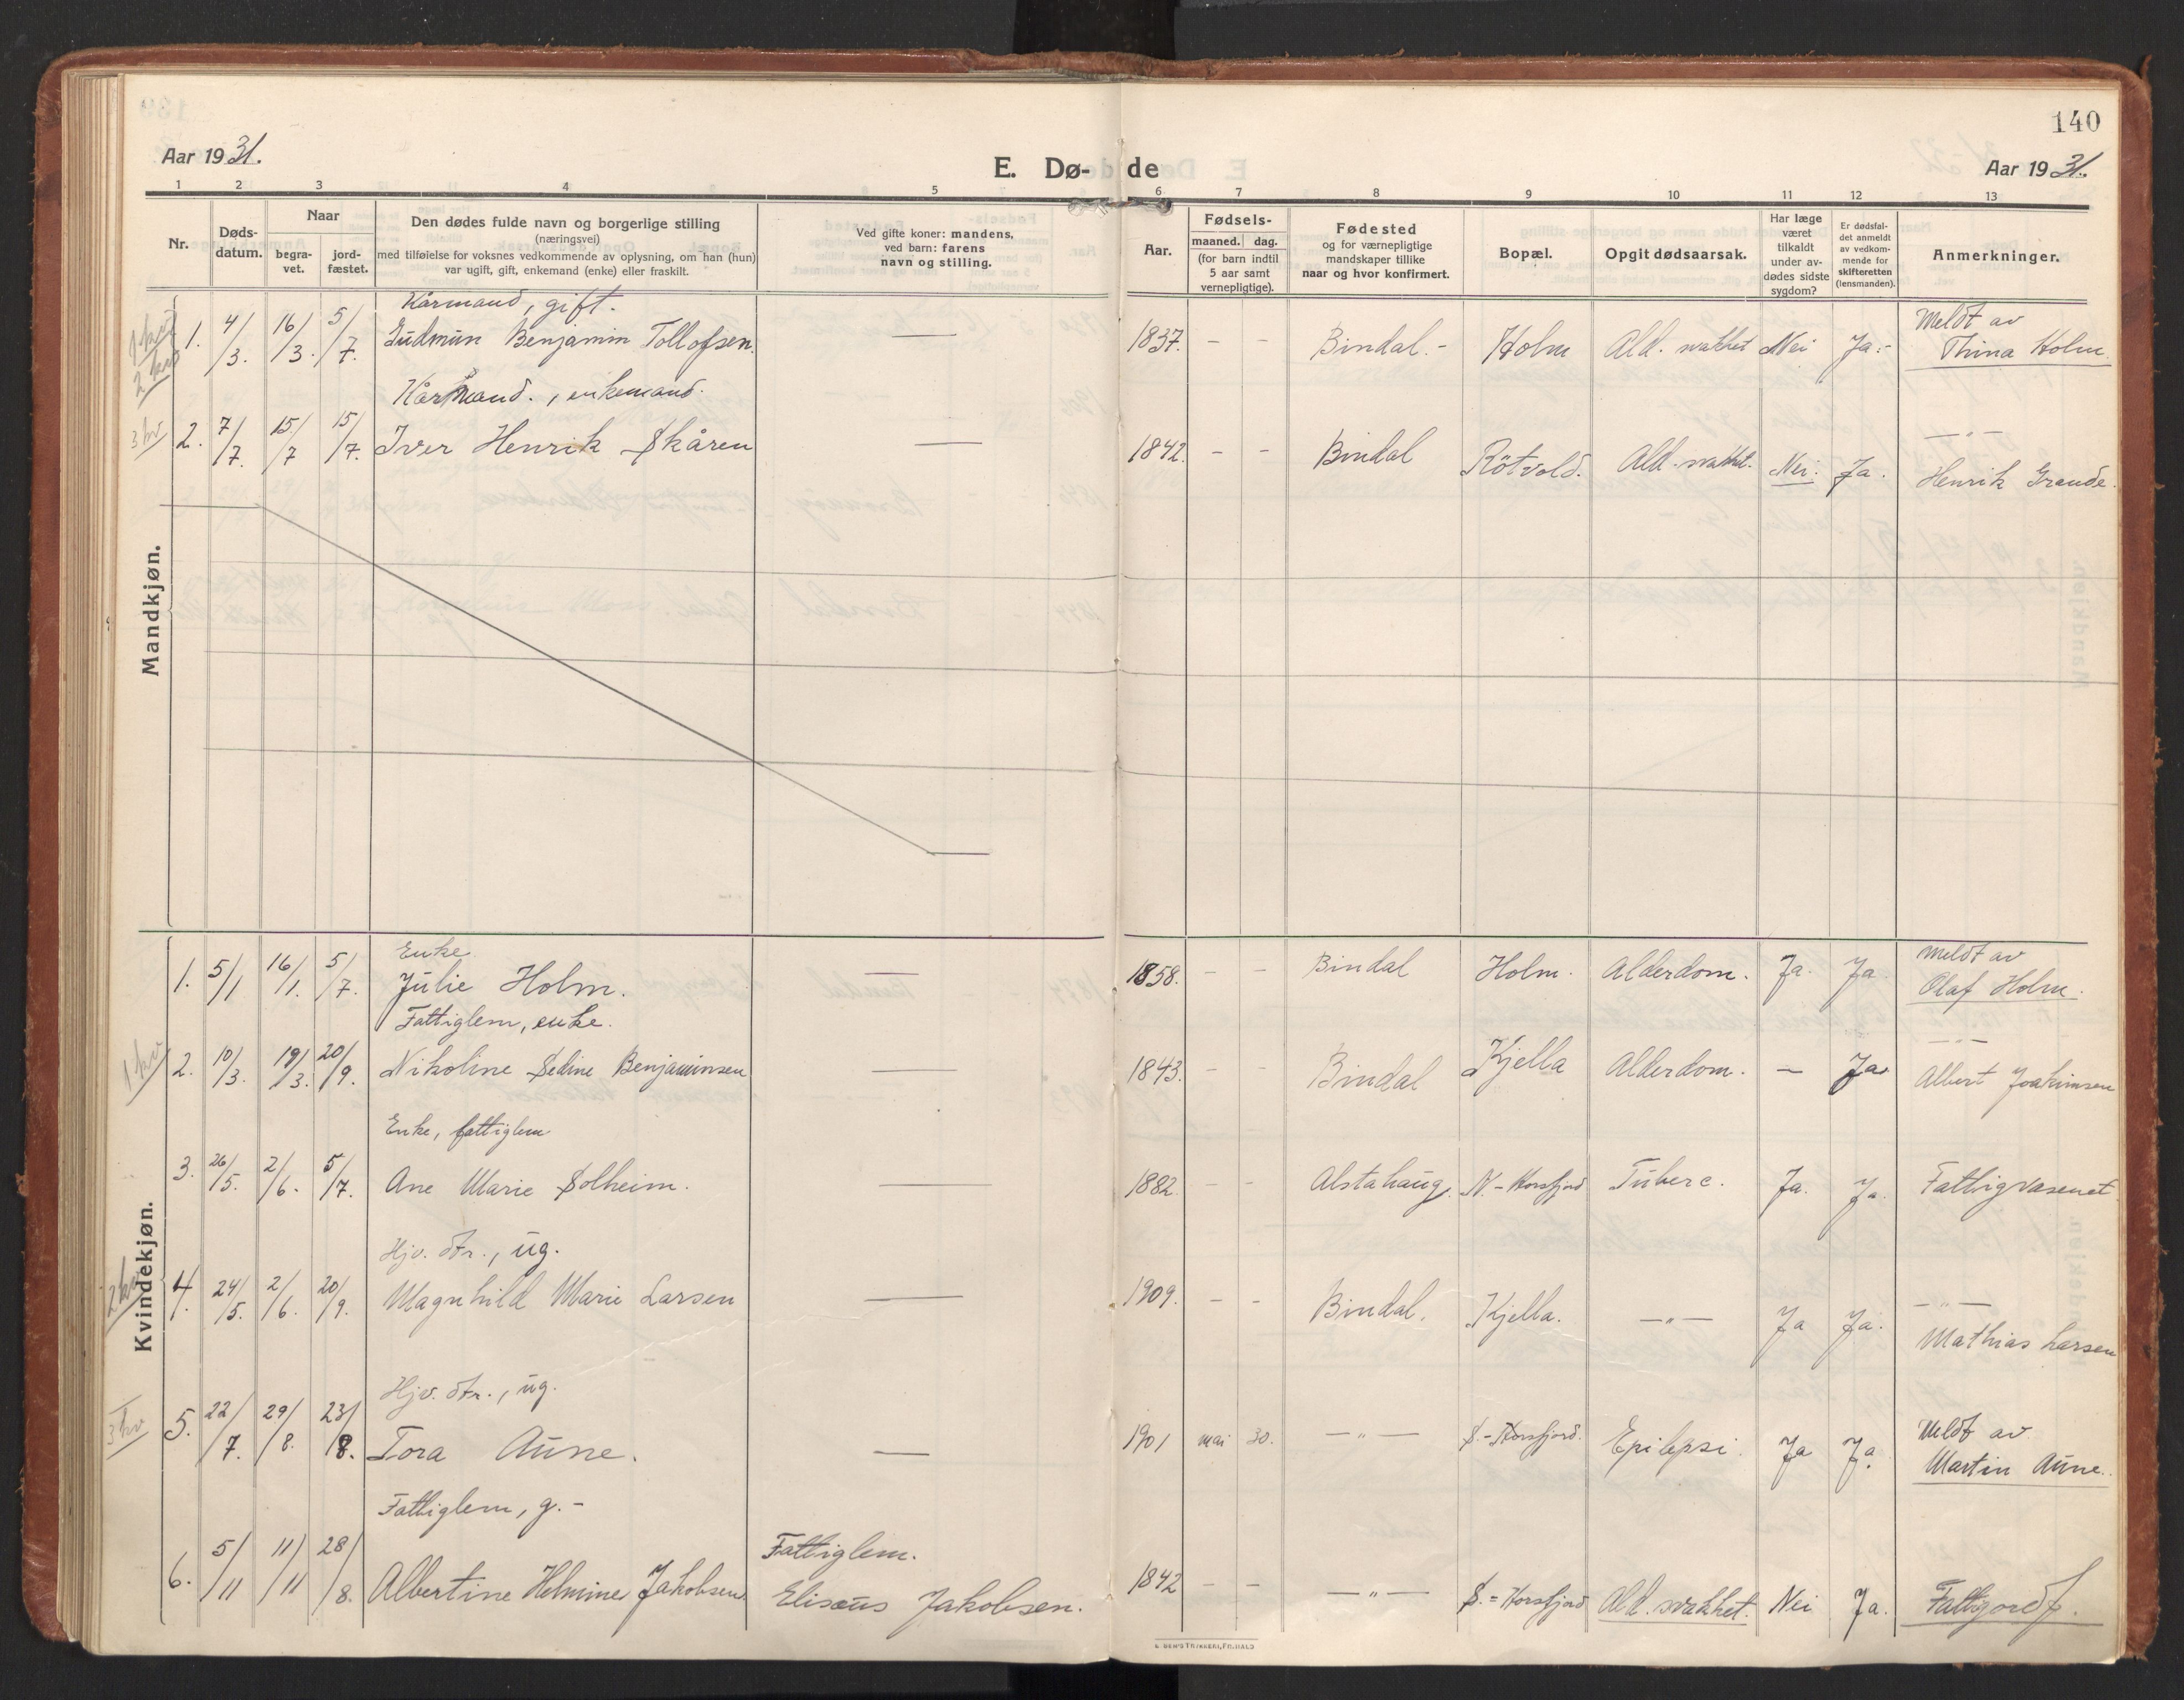 140
Aar 1931.
E. Dø-
de
Aar 1931.
1 2 3 4 5 6 7 8 9 10 11 12 13
Nr.
Døds-
datum.
Naar
begra-
vet.
jord-
fæstet.
Den dødes fulde navn og borgerlige stilling
(næringsvei)
med tilføielse for voksnes vedkommende av oplysning, om han (hun)
var ugift, gift, enkemand (enke) eller fraskilt.
Ved gifte koner: mandens,
ved barn: farens
navn og stilling.
Aar.
Fødsels-
maaned. dag.
(for barn indtil
5 aar samt
vernepligtige).
Fødested
og for værnepligtige
mandskaper tillike
naar og hvor konfirmert.
Bopæl.
Opgit dødsaarsak.
Har læge
været
tilkaldt
under av-
dødes sidste
sygdom?
Er dødsfal-
det anmeldt
av vedkom-
mende for
skifteretten
(lensmanden).
Anmerkninger.
Mandkjøn.
Kårmand, gift.
1. 4/3. 16/3. 5/7. Gudmun Benjamin Tollofsen. — 1837. - - Bindal.- Holm Ald. svakhet Nei Ja.- Meldt av
Thina Holm.
Kårmand., enkemand.
3 kv 2. 7/7. 15/7 15/7. Iver Henrik Skåren — 1842. - - Bindal Rötvold. Ald. svakhet. Nei. Ja. —"—
Henrik Grande.
Kvindekjøn.
Enke
1. 5/1 16/1. 5/7. Julie Holm. — 1858. - - Bindal Holm. Alderdom. Ja. Ja Meldt av
Olaf Holm.
Fattiglem, enke.
1 kv 2. 10/3. 19/3. 20/9. Nikoline Sedine Benjaminsen — 1843. - - Bindal Kjella Alderdom. — Ja —"—
Albert Joakimsen
Enke, fattiglem
3. 26/5. 2/6. 5/7. Ane Marie Solheim. — 1882. - - Alstahaug. N-Horsfjord Tuberc. Ja. Ja. Fattigvasenet
Hjv. dtr., ug.
2 kv 4. 24/5. 2/6. 20/9. Magnhild Marie Larsen — 1909. - - Bindal. Kjella. —"— Ja Ja. —"—
Mathias Larsen
Hjv. dtr., ug.
3 kv 5. 22/7. 29/8. 23/8. Tora Aune. — 1901 mai 30. —"— S.-Horsfjord. Epilepsi. Ja Ja. Meldt av
Martin Aune.
Fattiglem, g.-
6. 5/11 11/11 28/8. Albertine Helmine Jakobsen. Fattiglem.
Elisæus Jakobsen. 1842 - - —"— S.=Horsfjord Ald. svakhet. Nei Ja.